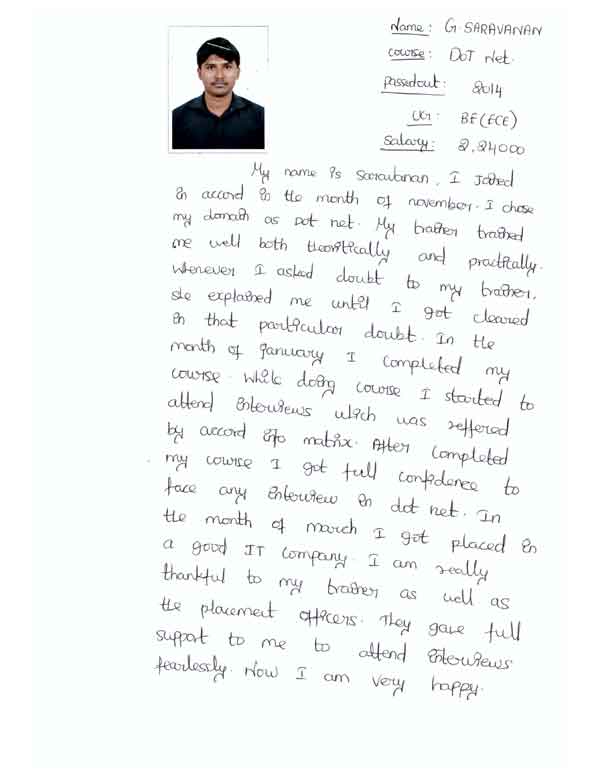 Name: G. SARAVANAN
course: DOT Net.
passedout: 2014
UG: BE(ECE)
Salary: 2,24000
My name is Saravanan, I Joined
in accord in the month of november. I chose
my domain as Dot net. My trainer trained
me well both theoritically and practically.
Whenever I asked doubt to my trainer,
she explained me until I got cleared
in that particular doubt. In the
month of january I completed my
course. While doing course I started to
attend interviews which was reffered
by accord info matrix. After completed
my course I got full confidence to
face any interview in dot net. In
the month of march I got placed in
a good IT company. I am really
thankful to my trainer as well as
the placement officers. They gave full
support to me to attend interviews
fearlessly. Now I am very happy.